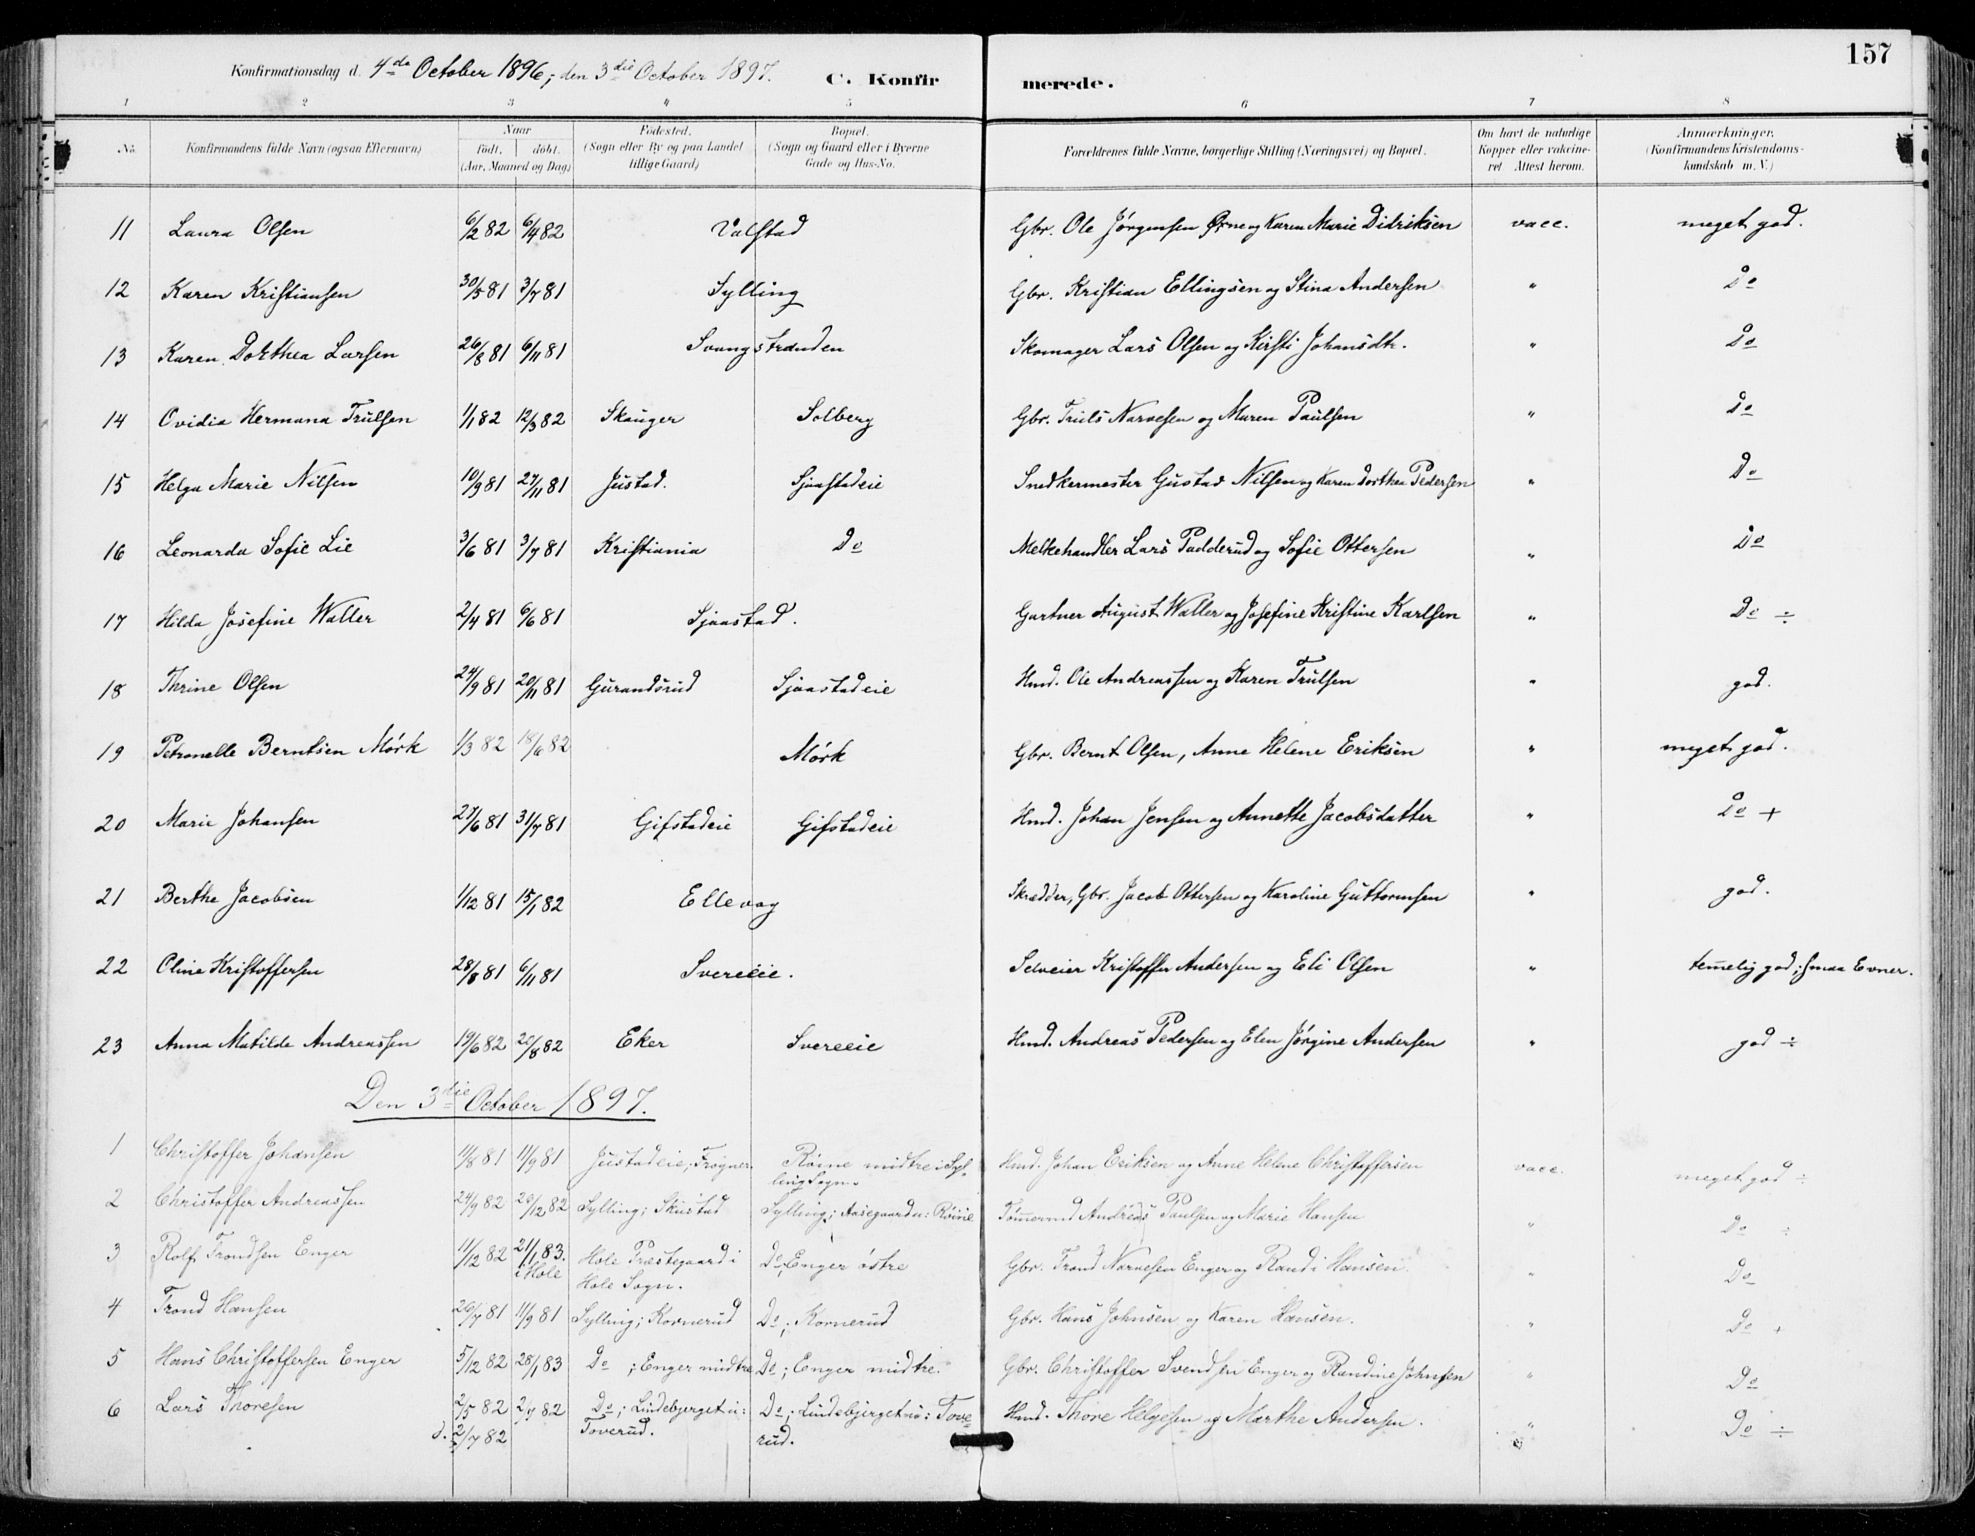 157
Konfirmationsdag d. 4de October 1896; den 3die October 1897. C. Konfirmerede.
1 2 3 4 5 6 7 8
No. Konfirmandens fulde Navn (ogsaa Efternavn) Naar født. døbt. (Aar, Maaned og Dag) Fødested. (Sogn eller By og paa Landet tillige Gaard) Bopæl. (Sogn og Gaard eller i Byerne Gade og Hus-No. Forældrenes fulde Navne, borgerlige Stilling (Næringsvei) og Bopæl. Om havt de naturlige Kopper eller vaccineret Attest herom. Anmærkninger. (Konfirmandens Kristendomskundskab m. V.)
11 Laura Olsen 6/2 82 6/4 82 Valstad Gbr. Ole Jørgensen Ørne og Karen Marie Didriksen vacc. meget god.
12 Karen Kristiansen 30/5 81 3/7 81 Sylling Gbr. Kristian Ellingsen og Stina Andersen " Do
13 Karen Dorthea Larsen 26/8 81 6/11 81 Svangstranden Skomager Lars Olsen og Kirsti Johansdtr. " Do
14 Ovidia Hermana Trulsen 1/1 82 12/3 82 Skauger Solberg Gbr. Truls Narvesen og Maren Paulsen " Do
15 Helga Marie Nilsen 10/9 81 27/11 81 Justad. Sjaastadeie Snedkermester Gustav Nilsen og Karen Dorthea Pedersen " Do
16 Leonarda Sofie Lie 3/6 81 3/7 81 Kristiania Do Melkehandler Lars Padderud og Sofie Ottersen " Do
17 Hilda Josefine Waller 2/4 81 6/6 81 Sjaastad. Gartner August Waller og Josefine Kristine Karlsen " Do ÷
18 Thrine Olsen 24/9 81 20/11 81 Gurandsrud Sjaastadeie Hmd. Ole Andreassen og Karen Trulsen " god.
19 Petronelle Berntsen Mørk 1/3 82 18/6 82 Mørk Gbr. Bernt Olsen, Anne Helene Eriksen " meget god.
20 Marie Johansen 27/6 81 31/7 81 Gifstadeie Gifstadeie Hmd. Johan Jensen og Annette Jacobsdatter " Do +
21 Berthe Jacobsen 1/12 81 15/1 82 Ellevog Skrædder, Gbr. Jacob Ottersen og Karoline Guttormsen " god.
22 Oline Kristoffersen 28/8 81 6/11 81 Svereeie. Selveier Kristoffer Andersen og Eli Olsen " temelig god; smaa Evner.
23 Anna Matilde Andreassen 19/6 82 20/8 82 Eker Svereeie Hmd. Andreas Pedersen og Elen Jørgine Andersen " god ÷
Den 3die October 1897.
1 Christoffer Johansen 11/8 81 11/9 81 Justadeie; Frogner. Røine midtre i Sylling Sogn. Hmd. Johan Eriksen og Anne Helene Christoffersen vacc. meget god ÷
2 Christoffer Andreassen 24/9 82 26/12 82 Sylling; Skustad Sylling; Aasegaard u: Røine Tømermd Andreas Paulsen og Marie Hansen " Do ÷
3 Rolf Trondsen Enger 11/12 82 21/1 83. i Hole Hole Præstegaard i Hole Sogn. Do; Enger østre Gbr. Trond Narvesen Enger og Randi Hansen. " Do
4 Trond Hansen 26/7 81 11/9 81 Sylling; Kornerud Do; Kornerud Gbr. Hans Johnsen og Karen Hansen. " Do +
5 Hans Christoffersen Enger 5/12 82 28/1 83 Do; Enger midtre Do; Enger midtre. Gbr. Christoffer Svendsen Enger og Randine Johnsen " Do
6 Lars Thoresen 2/5 82 2/7 82 Do; Lindebjerget u: Toverud. Do; Lindebjerget u: Toverud. Hmd. Thore Helgesen og Marthe Andersen. " Do ÷
d. 2/7 82